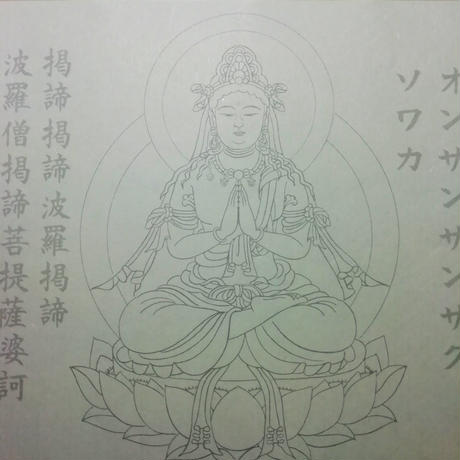 オンサンザンサク
ソワカ
掲諦掲諦波羅掲諦
波羅僧掲諦菩提薩婆訶